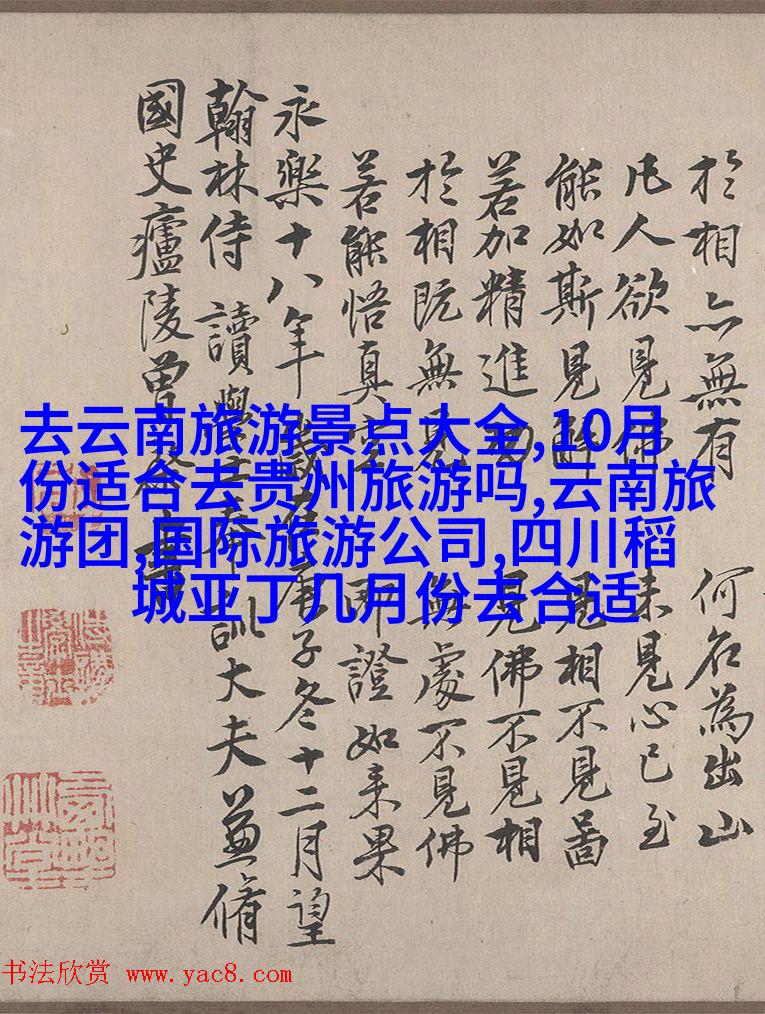 於相亦無有 何名為出山
凡人欲見佛 未見心已至
能如斯見解 見相不見啚
若加精進 見佛不見相
於相既無見 無處不見佛
若能悟真空 即證如来果
永樂十八年歲在庚子冬十二月望
翰林侍讀學士奉訓大夫兼脩
國史廬陵曾棨書
去云南旅游景点大全,10月
份适合去贵州旅游吗,云南旅
游团,国际旅游公司,四川稻
城亚丁几月份去合适
书法欣赏 www.yac8.com